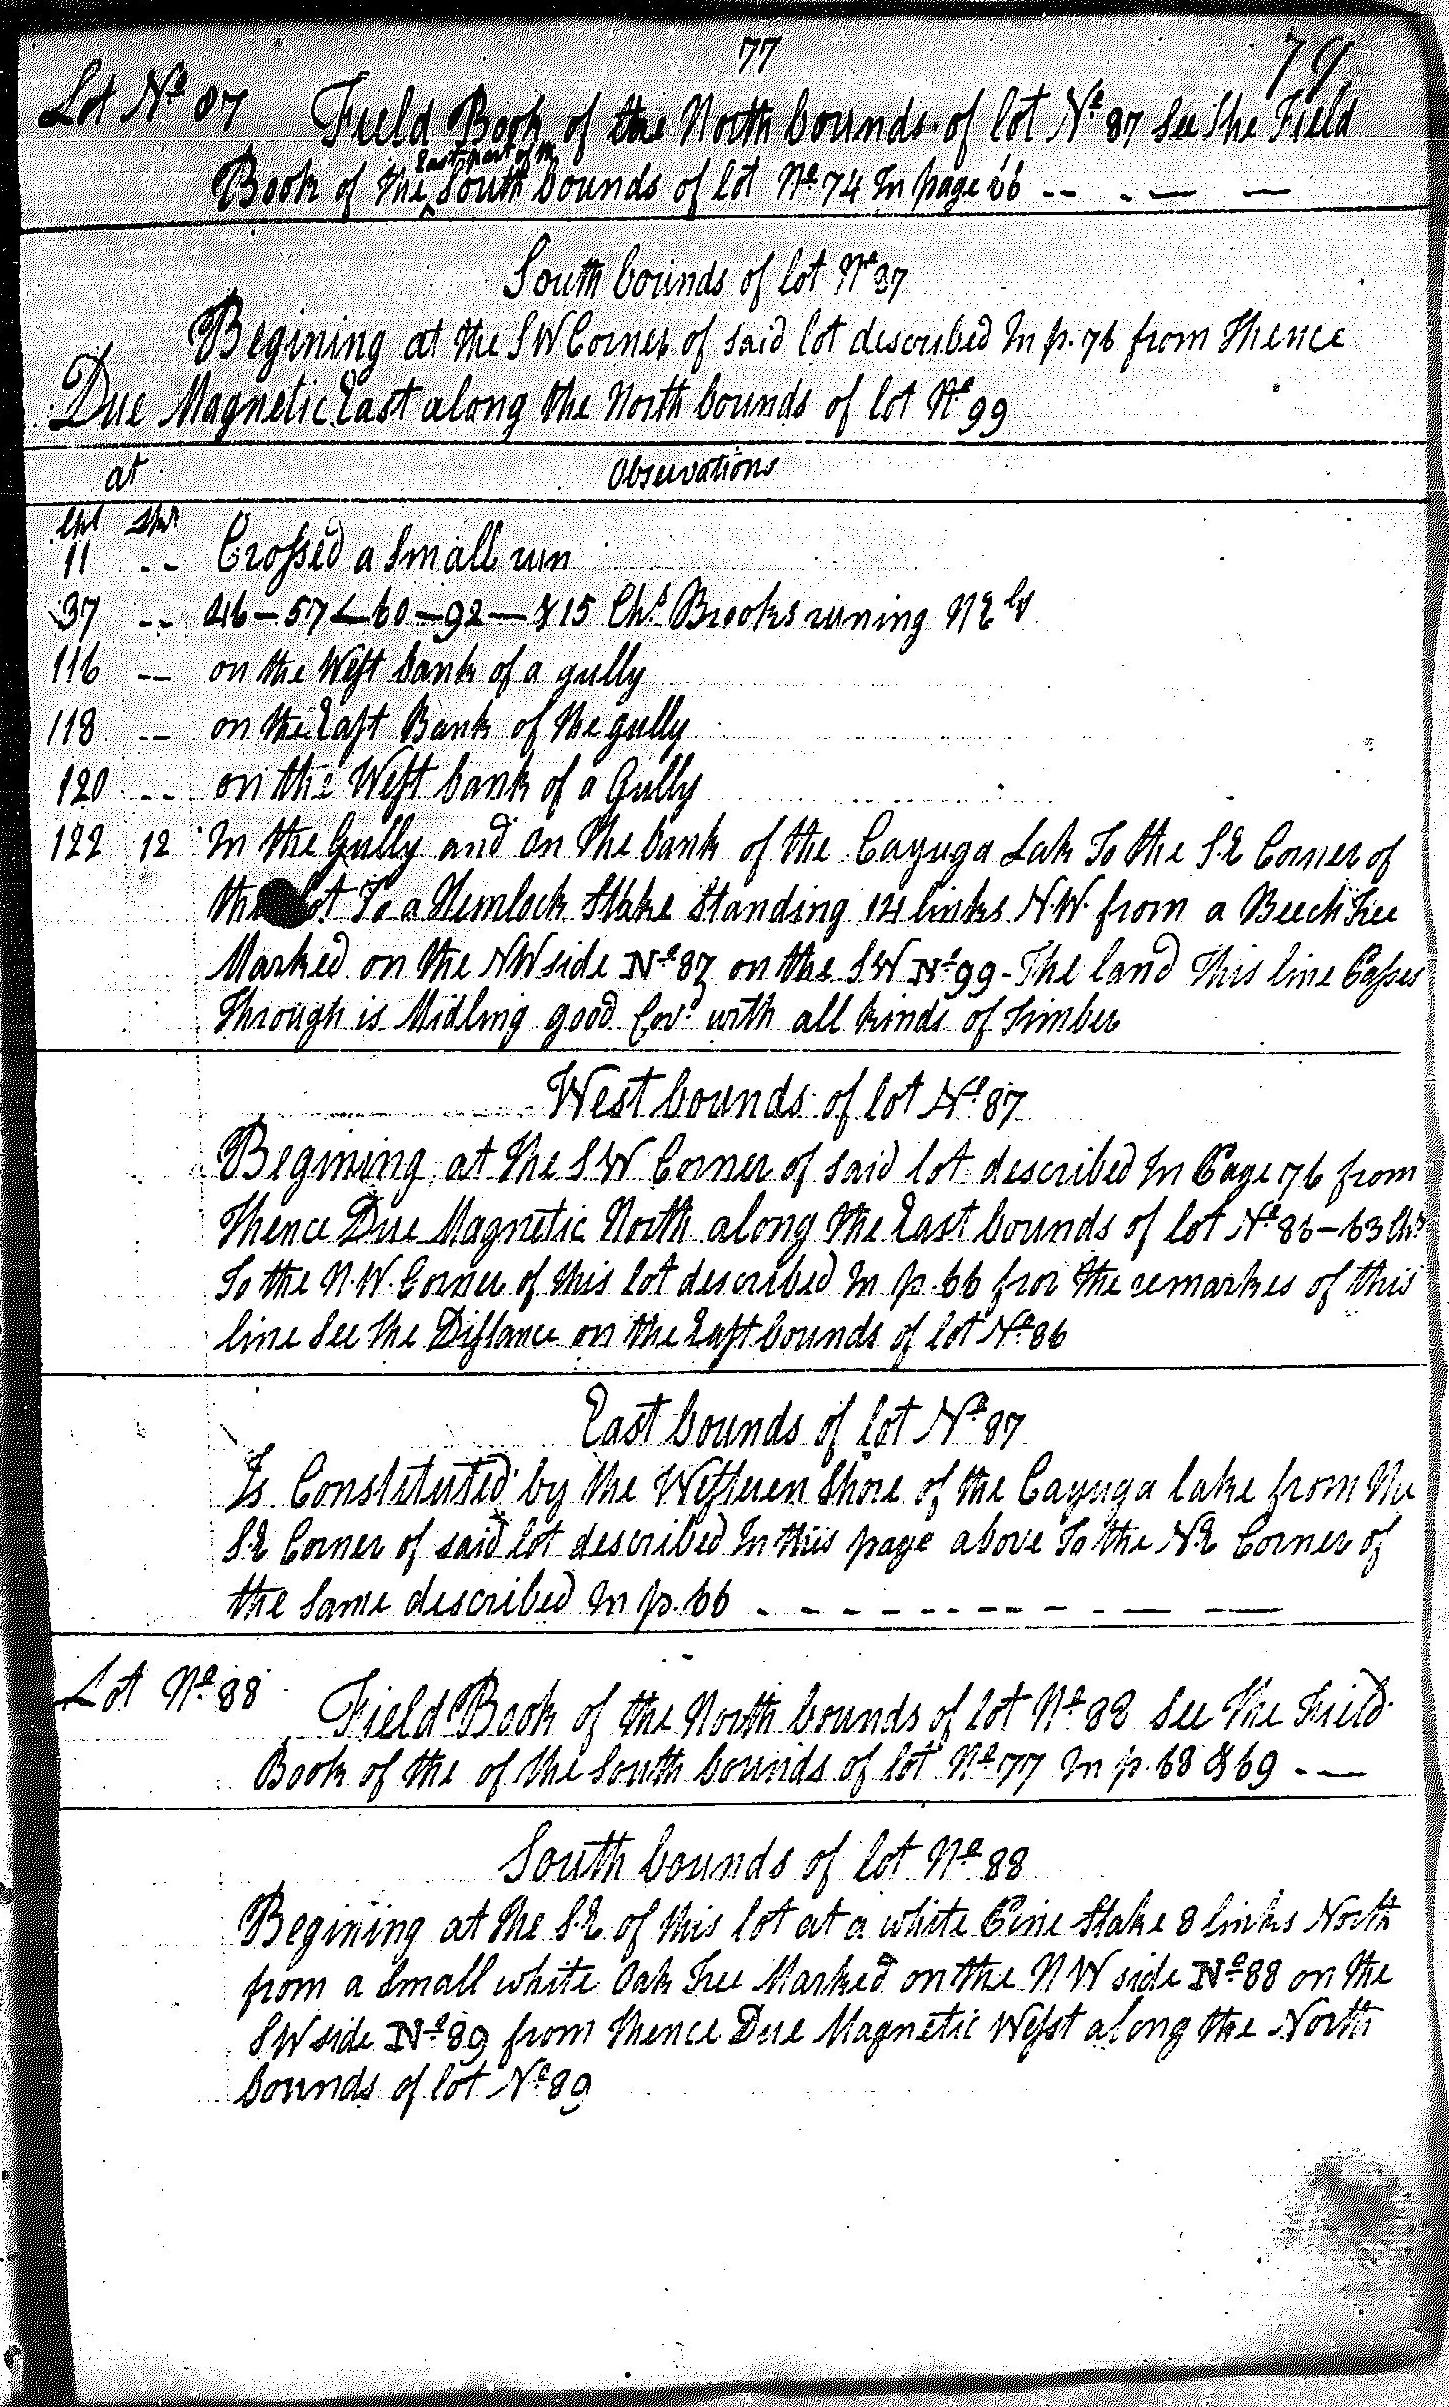 77
79
Lot No 87 Field Book of the North bounds of lot No 87 See The Field
East part of the
Book of the South bounds of lot No 74 In page 66 -- . — —
South bounds of lot No 87
Begining at the SW Corner of said lot described In p. 76 from Thence
Due Magnetic East along the North bounds of lot No 99
at Observations
Chs Lks
11 -- Crossed a Small run
37 -- 46 – 57 – 60 – 92 – & 15 Chs Brooks runing NEly
116 -- on the West bank of a gully
118 -- on the East Bank of the gully
120 -- on the West bank of a Gully
122 12 In the Gully and on The bank of the Cayuga Lak To the S.E Corner of
the Lot To a Hemlock Stake Standing links N.W. from a Beech Tree
Marked on the NW side No 87 on the SW No 99 - The land This line Passes
Through is Midling good Covd with all kinds of Timber
West bounds of lot No 87
Begining at the SW Corner of said lot described In Page 76 from
Thence Due Magnetic North along the East bounds of lot No 86 – 63 Chs
To the N.W. Corner of this lot described In p. 66 fror the remarkes of this
line See the Distance on the East bounds of lot No 86
East bounds of lot No 87
Is Constituted by the Westeren Shore of the Cayuga lake from the
S.E Corner of said lot described In this page above To the NE Corner of
the Same described In p. 66 - - - - - - - - - - — —
Lot No 88 Field Book of the North bounds of lot No 88 See The Field
Book of the of the South bounds of lot No 77 In p. 68 & 69 - —
South bounds of lot No 88
Begining at the S.E. of this lot at a white Pine Stake 8 links North
from a Small white Oak Tree Marked on the NW side No 88 on the
SW side No 89 from Thence Due Magnetic West along the North
bounds of lot No 89